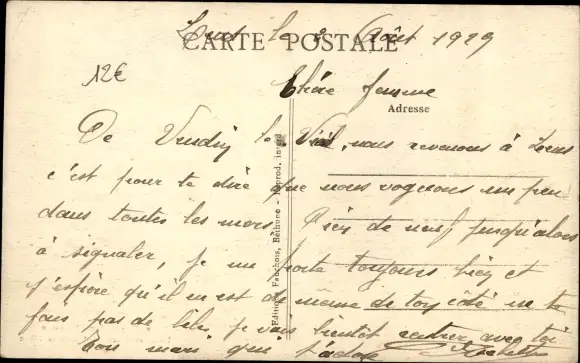 Lens le 2 Août 1929
CARTE POSTALE
12€
Chère femme
Adresse
De Vendin le Vieil, nous revenons à Lens
c'est pour te dire que nous voguons un peu
dans toutes les mers. Rien de neuf jusqu'alors
à signaler, je me porte toujours bien et
j'espère qu'il en est de même de ton côté ne te
fais pas de bile, je vais bientôt rentrer avec toi
Ton mari qui t'adore
Editions Fauchois, Béthune - Reprod. interd.